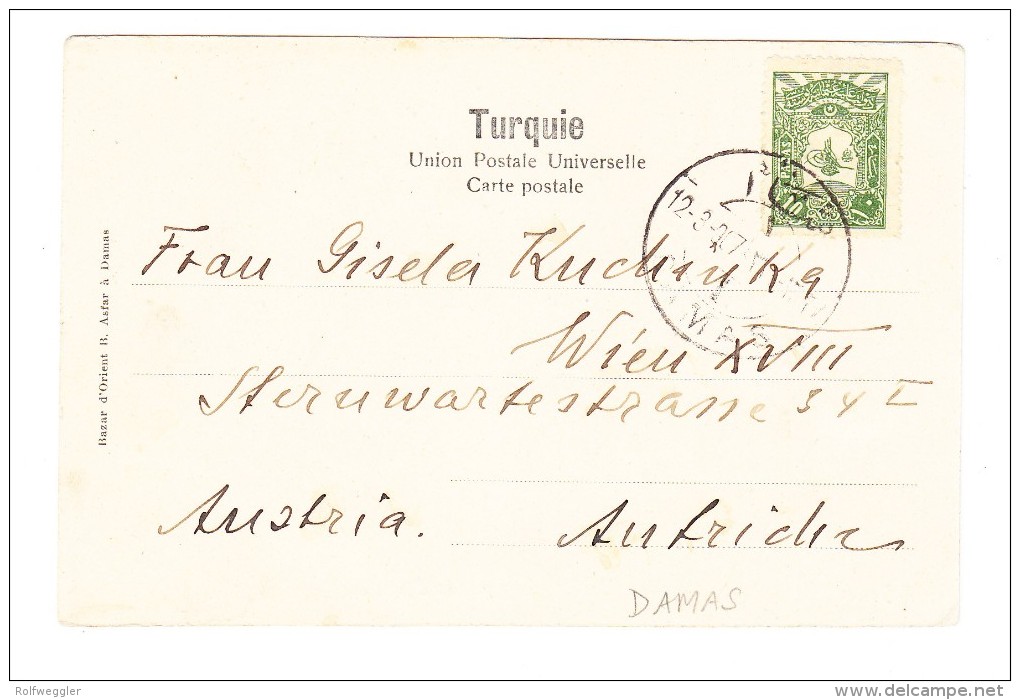 Turquie
Union Postale Universelle
Carte postale
12-3-07
Frau Gisela Kuchinka
Wien XVIII
Sternwartestrasse 34 I
Austria. Autriche
DAMAS
Bazar d'Orient B. Asfar à Damas
Rolfweggler
delcampe.net